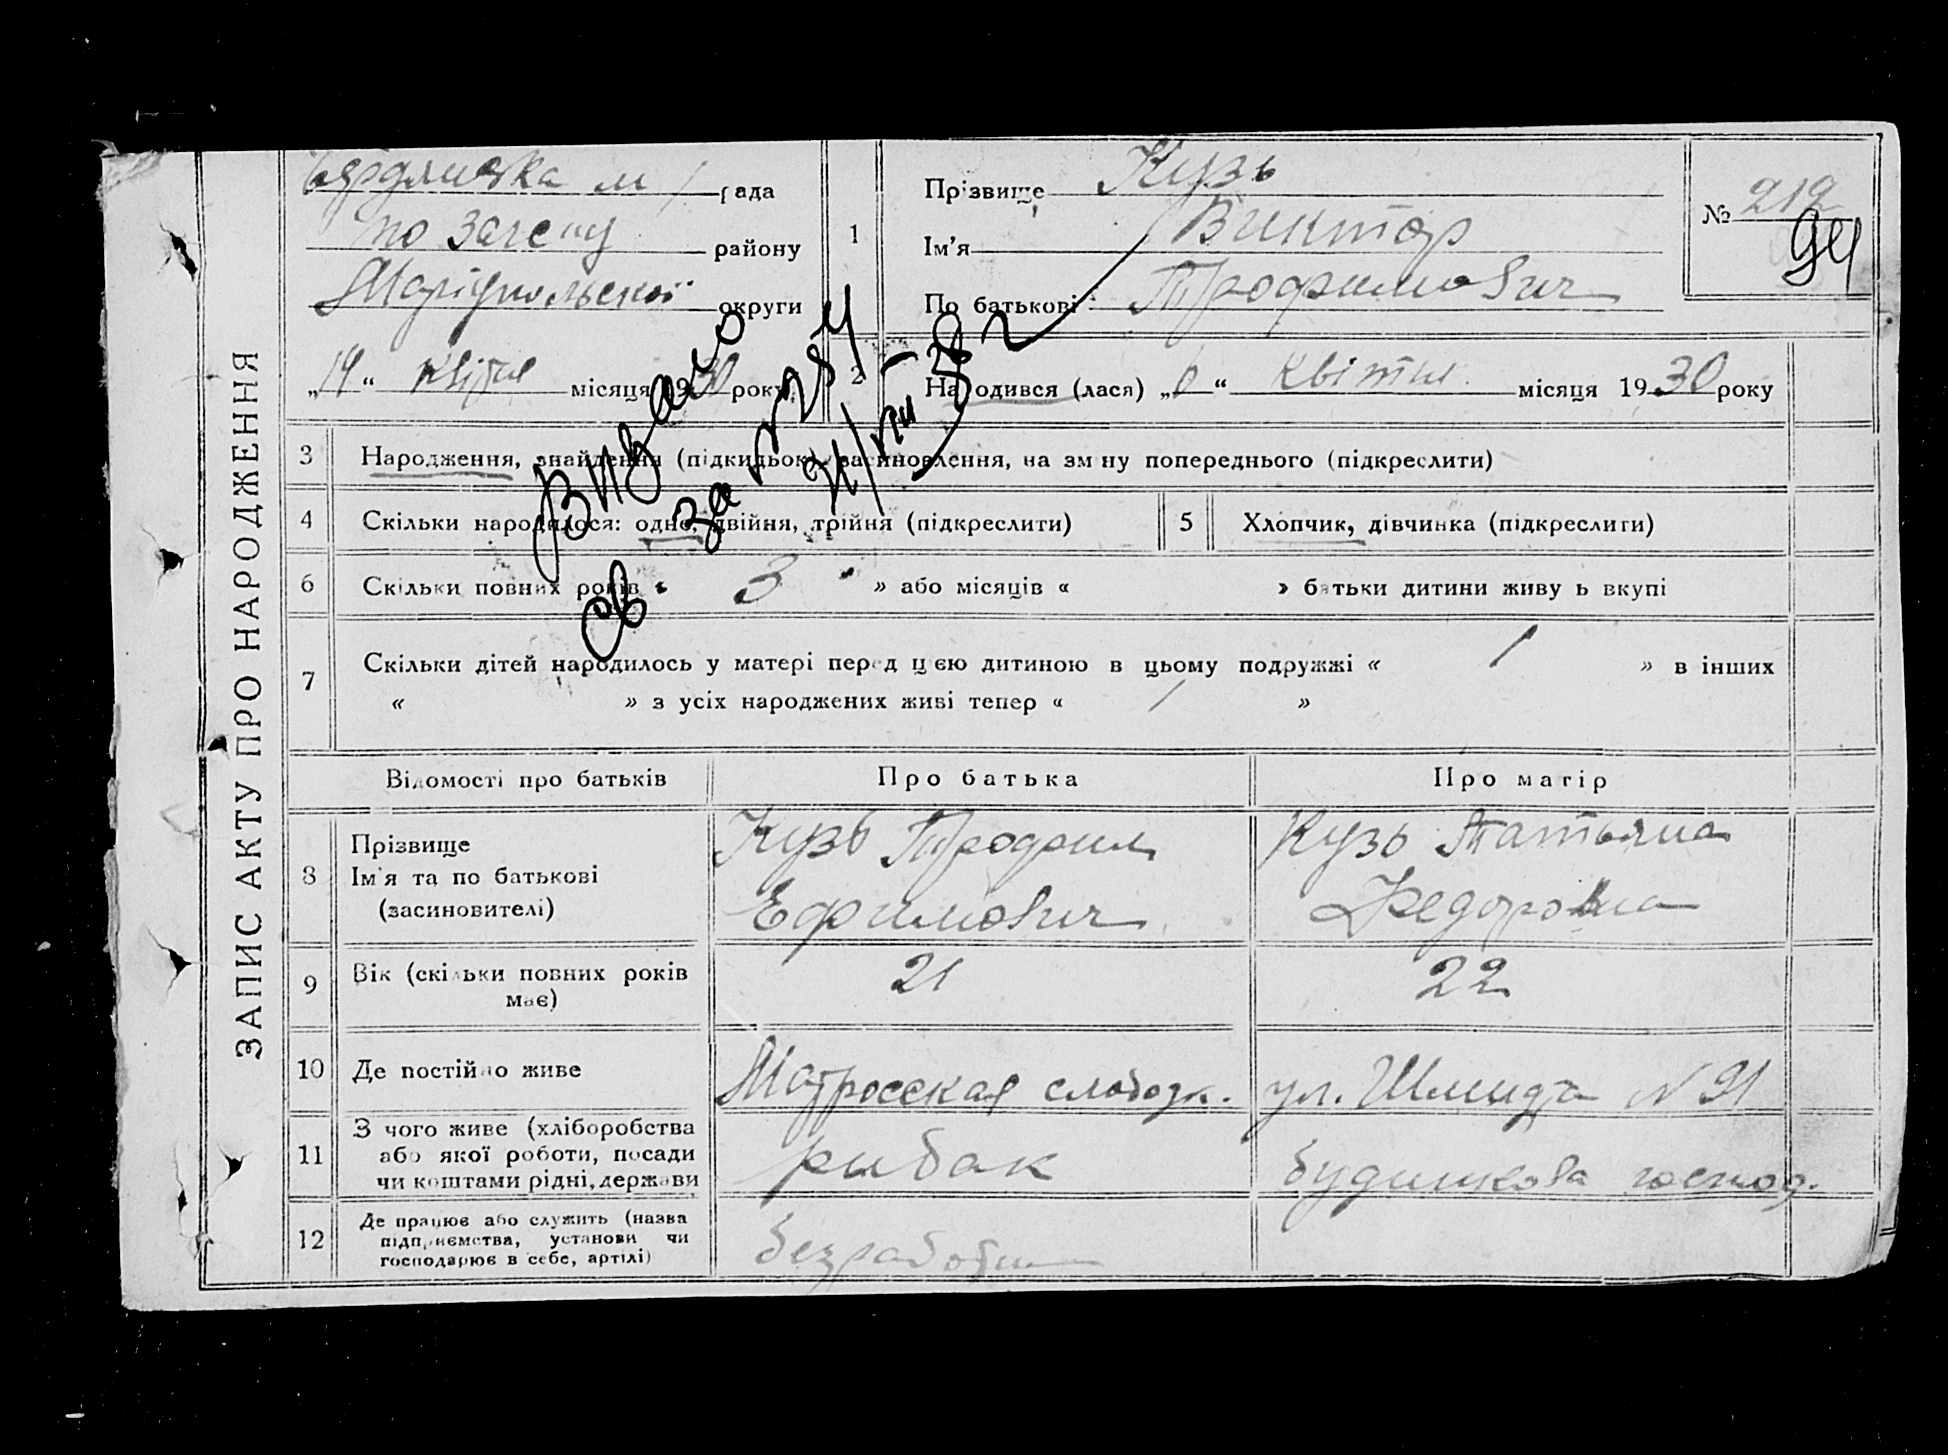 ЗАПИС АКТУ ПРО НАРОДЖЕННЯ
Бердянська м рада
по загсу району
Маріупольської округи
„14“ квітня місяця 1930 року
1 Прізвище Кузь
Ім'я Виктор
По батькові Трофимович
№ 212
94
2 Народився (лася) „6“ квітня місяця 1930 року
Видано
св за №
3 Народження, знайдення (підкидьок), засиновлення, на зміну попереднього (підкреслити)
4 Скільки народилося: одне, двійня, трійня (підкреслити)
5 Хлопчик, дівчинка (підкреслити)
6 Скільки повних років « 3 » або місяців « » батьки дитини живуть вкупі
7 Скільки дітей народилось у матері перед цією дитиною в цьому подружжі « 1 » в інших
« » з усіх народжених живі тепер « 1 »
Відомості про батьків Про батька Про матір
8 Прізвище
Ім'я та по батькові
(засиновителі)
Кузь Трофим
Ефимович
Кузь Татьяна
Федоровна
9 Вік (скільки повних років
має)
21
22
10 Де постійно живе
Матросская слободк.
ул. Шмидта № 91
11 З чого живе (хліборобства
або якої роботи, посади
чи коштами рідні, держави
рибак
будинкова господ.
12 Де працює або служить (назва
підприємства, установи чи
господарює в себе, артілі)
безработн